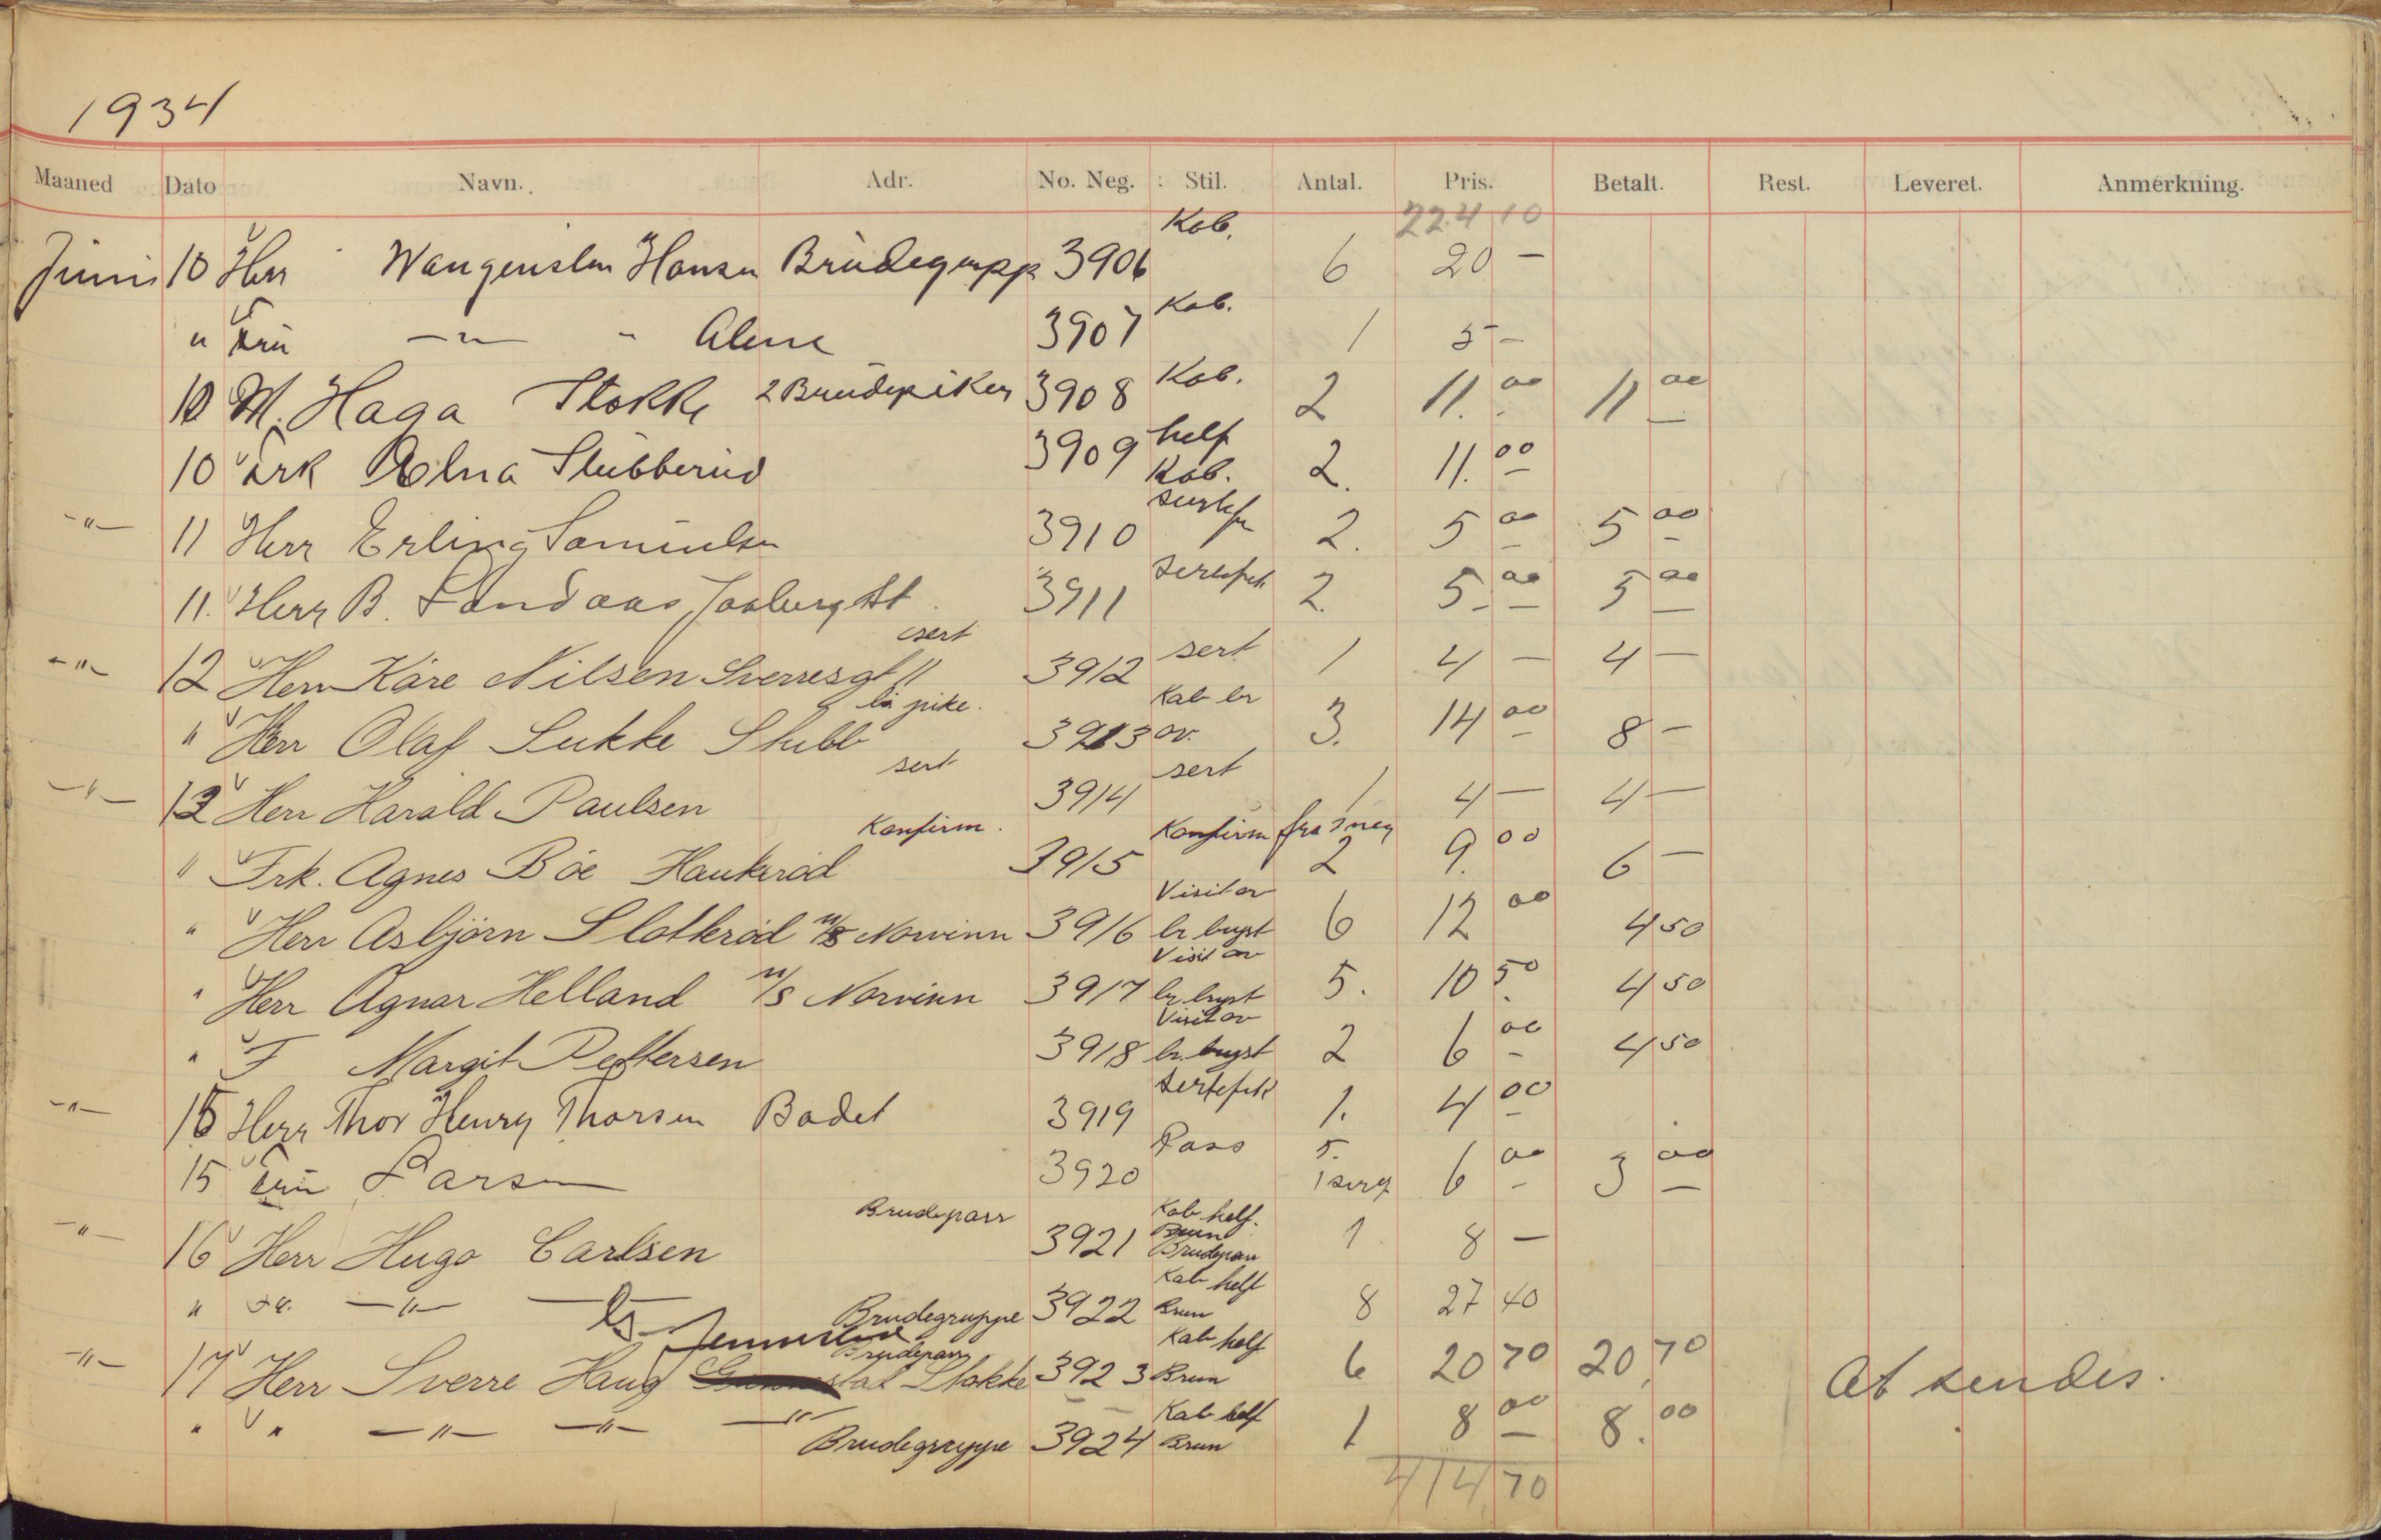 1934
Maaned Dato Navn. Adr. No. Neg. Stil. Antal. Pris. Betalt. Rest. Leveret. Anmerkning.
224 10
Juni 10 Herr Wangensten Hansen Brudegrupp 3906 Kab. 6 20 —
" Fru —"— " Alene 3907 Kab. 1 5 —
10 M. Haga Stokke 2 Brudepiker 3908 Kab. 2 11.00 11 00
10 Frk Elna Stubberud 3909 helf Kab. 2. 11.00
—"— 11 Herr Erling Samuelsen 3910 2. 5 00 5 00
11. Herr B. Landaas 3911 2. 5.00 5 00
—"— 12 Herr Kåre Nilsen Sverresgt 11 sert 3912 sert 1 4 — 4 —
" Herr Olaf Lukke Stubb li pike. 3913 Kab br ov. 3. 14 00 8 —
—"— 13 Herr Harald Paulsen sert 3914 sert 1 4 — 4 —
" Frk. Agnes Böe Haukeröd Konfirm. 3915 Konfirm fra 2 neg 2 9.00 6 —
" Herr Asbjörn Slotteröd M/S Norvinn 3916 Visit ov br byst 6 12 00 4 50
" Herr Agnar Helland M/S Norvinn 3917 Visit ov br byst 5. 10 50 4 50
" F Margit Pettersen 3918 Visit ov br byst 2 6 00 4 50
—"— 15 Herr Thor Henry Thorsen Badet 3919 sertefik 1. 4 00
15 Fru Larsen 3920 Pass 5. 1 6 00 3 00
—"— 16 Herr Hugo Carlsen Brudepar 3921 Kab helf. Brun Brudepar 1 8 —
" —"— Brudegruppe 3922 Kab helf Brun 8 27 40
—"— 17 Herr Sverre Haug Brudepar Stokke 3923 Kab helf Brun 6 20 70 20,70 At sendes.
" " —"— —"— —"— Brudegruppe 3924 Kab helf Brun 1 8 00 8.00
414,70